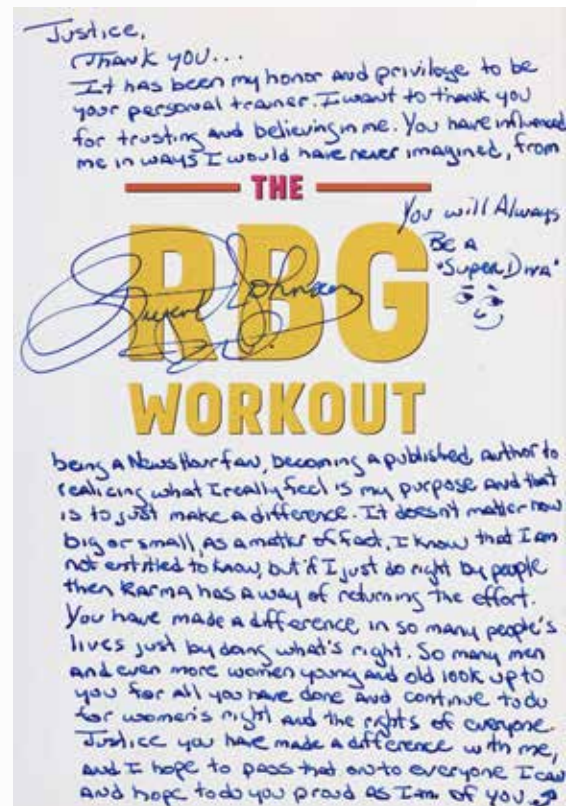 Justice,
Thank you...
It has been my honor and privilege to be
your personal trainer. I want to thank you
for trusting and believing in me. You have influenced
me in ways I would have never imagined, from
THE
You will Always
BE A
"Super Diva"
RBG
Bryant Johnson
WORKOUT
being a NewsHour fan, becoming a published author to
realicing what I really feel is my purpose and that
is to just make a difference. It doesn't matter how
big or small, as a matter of fact, I know that I am
not entitled to know, but if I just do right by people
then Karma has a way of returning the effort.
You have made a difference in so many people's
lives just by doing what's right. So many men
and even more women young and old look up to
you for all you have done and continue to do
for women's right and the rights of everyone.
Justice you have made a difference with me,
and I hope to pass that on to everyone I can
and hope to do you proud as I am of you.